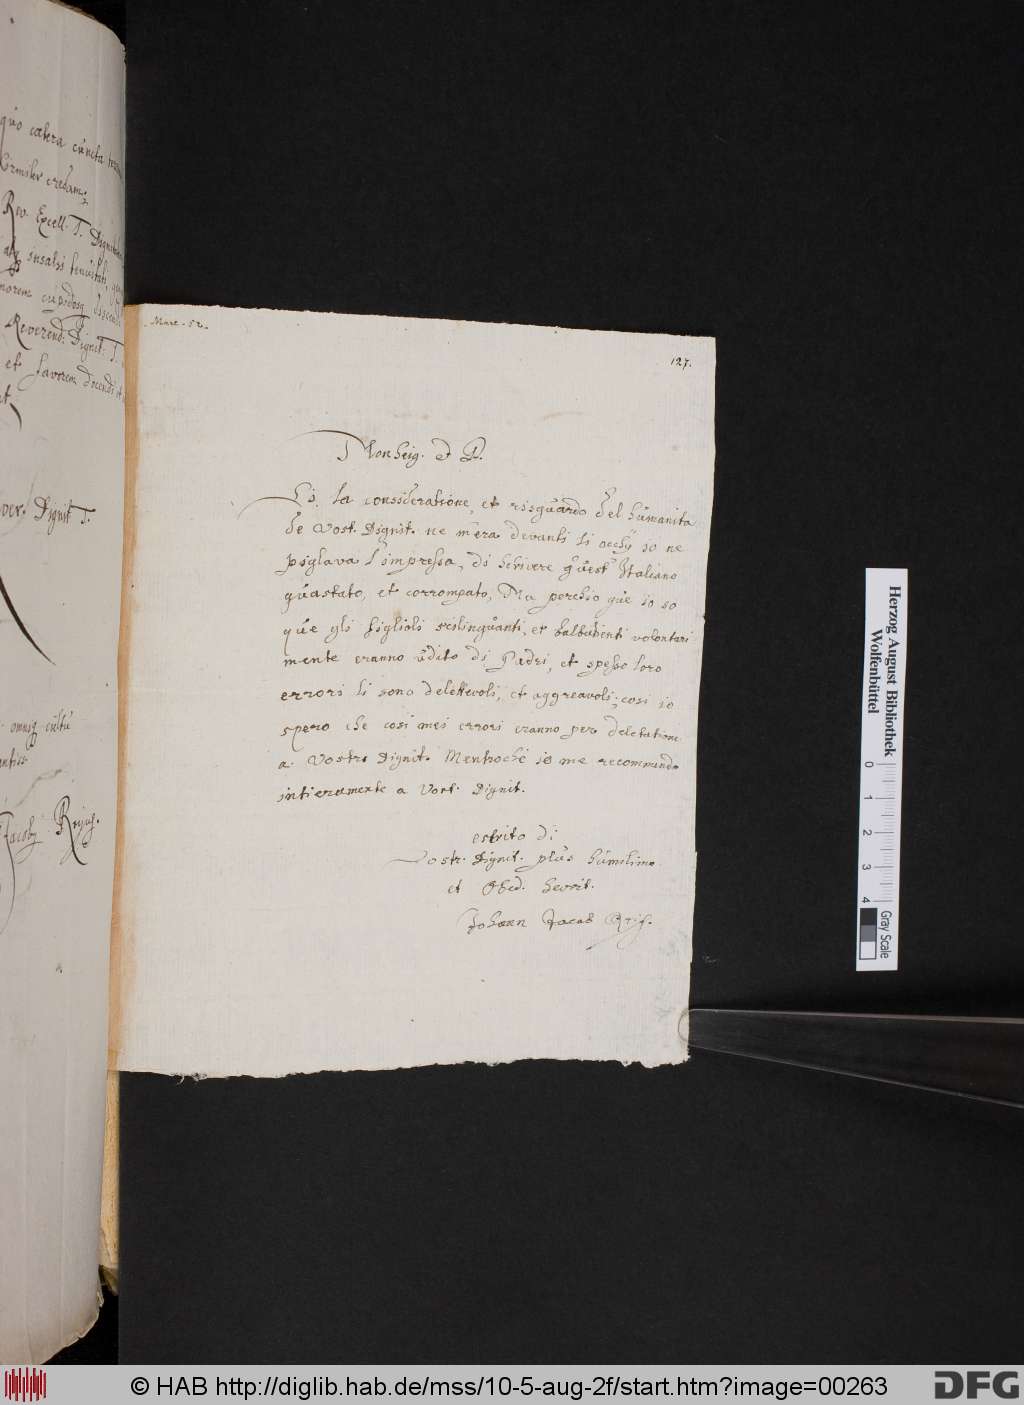 quo cætera cuncta
credam;
Rev. Excell. T.
Reverend. Dignit. T.
et favorem docendi et
Dignit T.
omnisq cultu
Jacob
Marc. 52.
127.
Monseig. et P.
Si la consideratione, et risguardo del humanita
de Vost. Dignit. ne m'era devanti li occhÿ io ne
piglava l'impressa, di scrivere quest' Italiano
guastato, et corrompato, Ma perchio que io so
que gli figlioli scilinguanti, et baltubenti volontari
mente eranno udito di Padri, et spesso loro
errori li sono delettevoli, et aggreavoli; cosi io
spero che cosi mei errori eranno per deletatione
a Vostra Dignit. Mentrochè io me recommendo
intieramente a Vost. Dignit.
estrito di
Vostr. Dignit. plus humilimo
et Obed. Servit.
Johann Jacob
Herzog August Bibliothek
Wolfenbüttel
0 1 2 3 4
Gray Scale
© HAB http://diglib.hab.de/mss/10-5-aug-2f/start.htm?image=00263
DFG